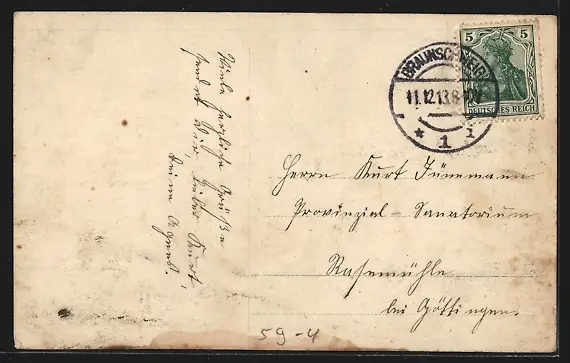 Viele herzliche Grüße
sendet Dir, lieber Kurt
Deine Agnes.
BRAUNSCHWEIG
11.12.13.8-9V.
* 1 i
5 5
DEUTSCHES REICH
Herrn Kurt Tünnemann
Provinzial-Sanatorium
Rasemühle
bei Göttingen.
59-4